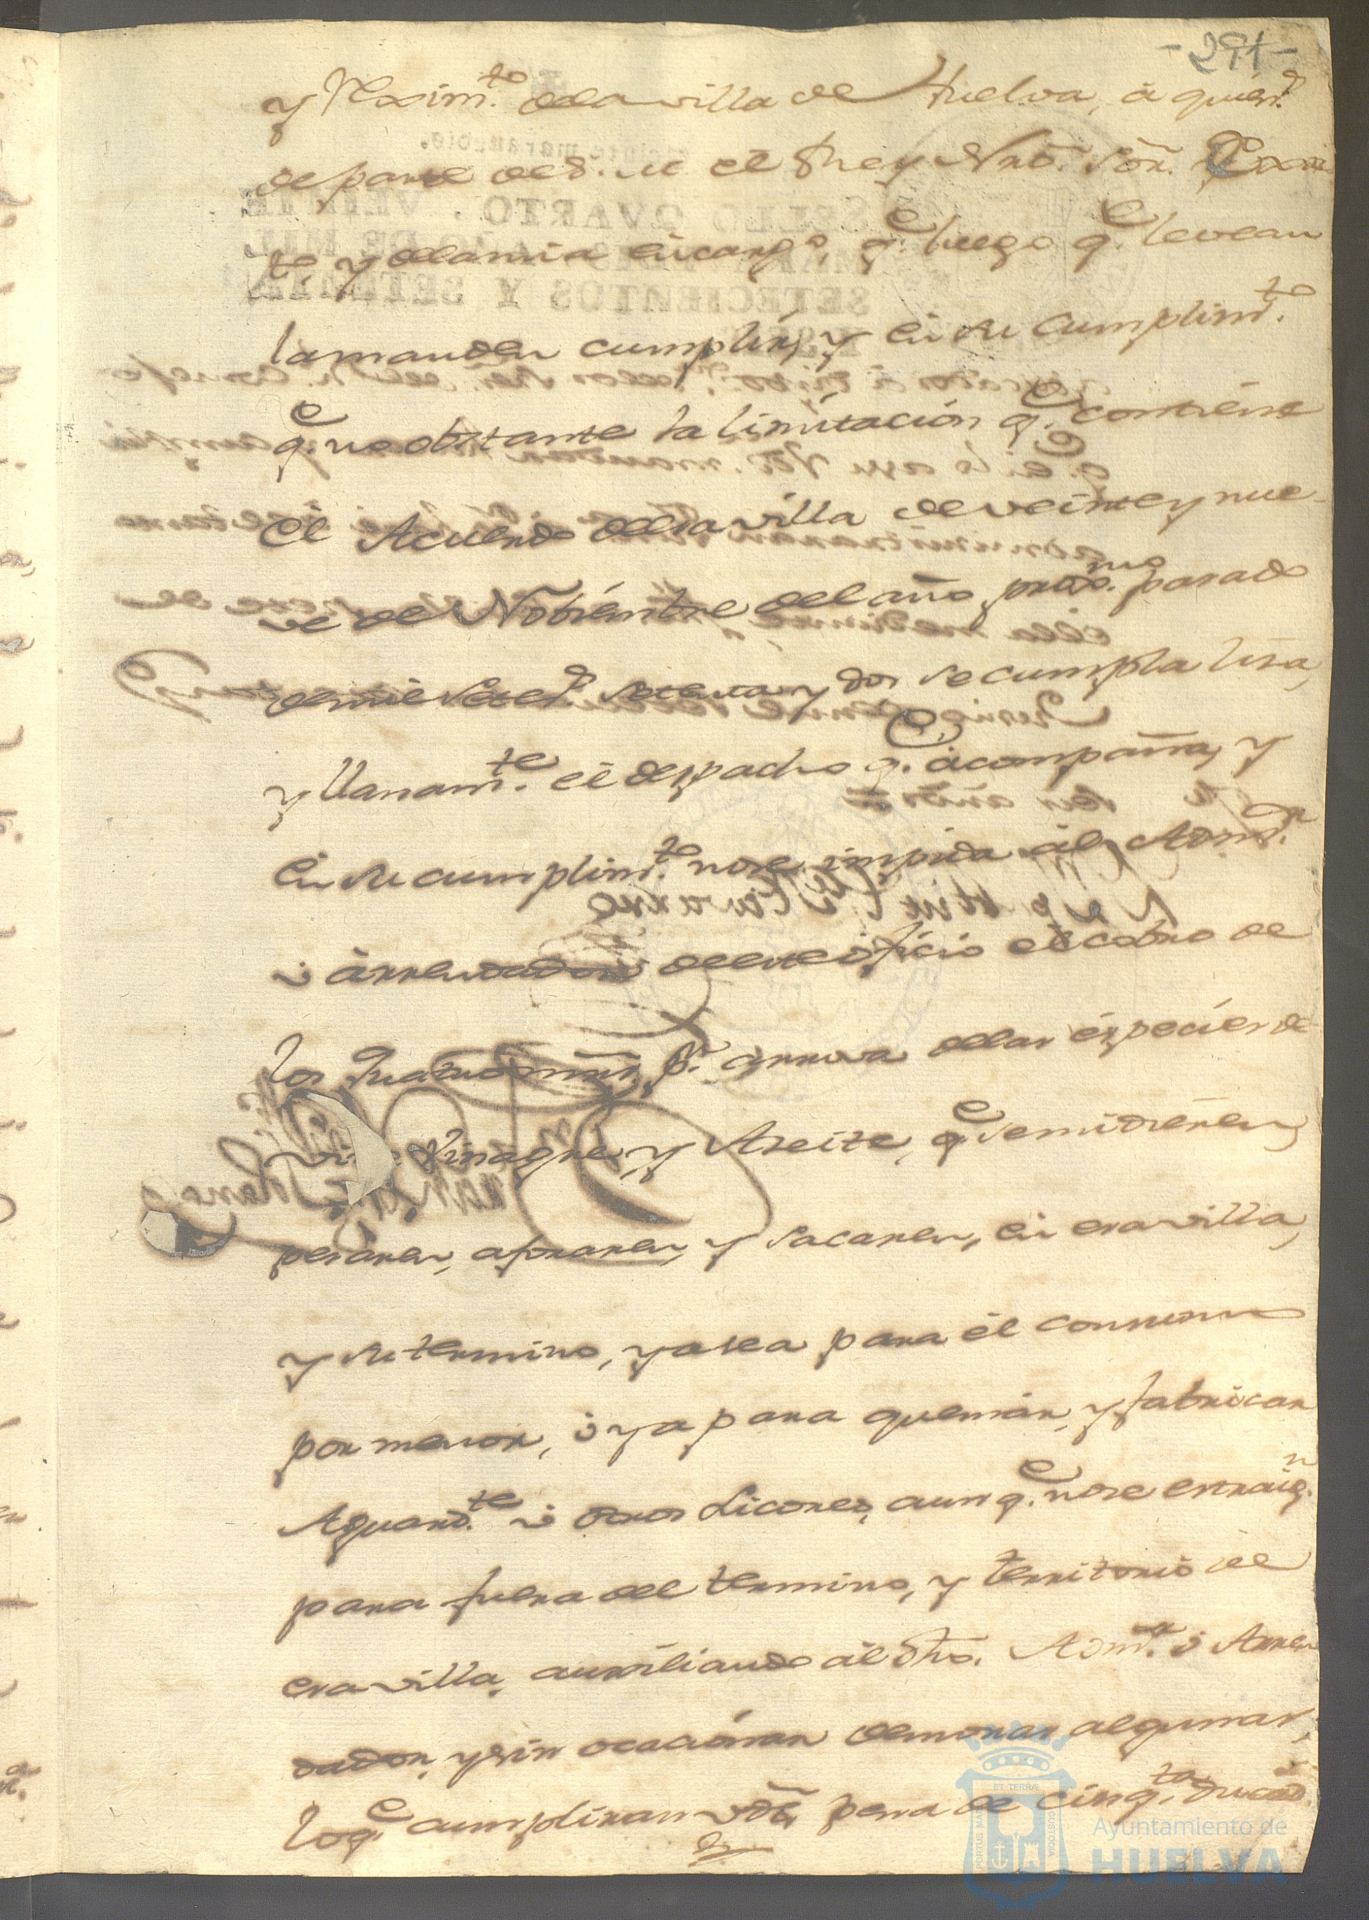 -291-
y Rexim.to de la villa de Huelva, à quien.s
de parte de S. M. el Rey Nrõ. Sõr. Exsor
to y de la mia encargo, q.e luego q.e le vean
la manden cumplir, y en su cumplim.to
q.e no obstante la limitacion q.e contiene
el Acuerdo de esa villa de veinte y nue-
ve de Nobiembre del año proxo.mo pasado
de mil setez.s setenta y dos se cumpla lisa,
y llanam.te el despacho q.e acompaña, y
en su cumplim.to no se impida al Adm.or
ò arrendador de este oficio el cobro de
los quatro mrs. p.r arrova de las especies de
Vinagre y Aseite, q.e se midieren,
pesaren, aforaren, y sacaren, en esa villa,
y su termino, ya sea para el consumo
por menor, ò ya para quemar, y fabricar
Aguard.te ù otros Licores, aunq.e no se estraig.n
para fuera del termino, y territorio de
esa villa, auxiliando al dho. Adm.or ò Arren
dador, y sin ocacionar demoras algunas,
loq.e cumpliran Vds. pena de cinq.ta ducad.s
Ayuntamiento de
HUELVA